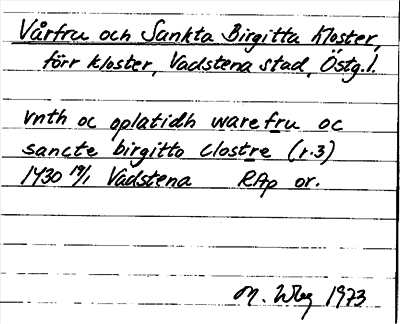 Vårfru och Sankta Birgitta kloster,
förr kloster, Vadstena stad, Östg.l.
vnth oc oplatidh warefru oc
sancte birgitto clostre (r.3)
1430 19/1 Vadstena RAp or.
M. Wbg 1973